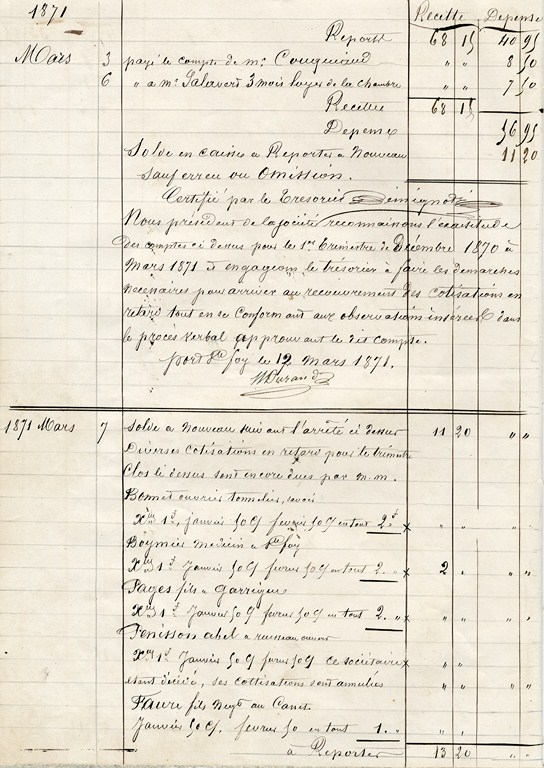 1871
Recette Depense
Report 68 15 40 95
Mars 3 payé le compte de mr " " 8 50
6 " a mr Salavert 3 mois loyer de la chambre " " 7 50
Recette 68 15
Depense 56 95
Solde en caisse a Reporter a Nouveau 11 20
Sauf erreu ou Omission.
Certifié par le Tresorier
Nous président de la société reconnaissons l'exactitude
des comptes ci dessus pour le 1er trimestre de Décembre 1870 à
Mars 1871 et engageons le trésorier à faire les demarches
necenaires pour arriver au recouvrement des cotisations en
retard tout en se conformant aux observations insérées dans
le procès verbal approuvant le dit compte.
port Ste foy le 12 Mars 1871.
Durand
1871 Mars 7 Solde a Nouveau suivant l'arrêté ci dessus 11 20 " "
Diverses cotisations en retard pour le trimestre
Clos ci dessus sont encore dues par m.m.
Bonnet ouvrier tonnelier, savoir
Xbre 1f, janvier 50c fevrier 50c en tout 2f x " " " "
Boymier medecin a Ste foy
Xbre 1f Janvier 50c fevrier 50c en tout 2. " x 2 " " "
Pages fils a Garrigue
Xbre 1f Janvier 50c fevrier 50c en tout 2. " x " " " "
Tenisson abel a ruisseau
Xbre 1f Janvier 50c fevrier 50c ce sociétaire x " "
etant décédé, ses cottisations sont annulées " " " "
Faure fils Negt au Canet
Janvier 50c. fevrier 50 en tout 1. " " "
à Reporter 13 20 " "